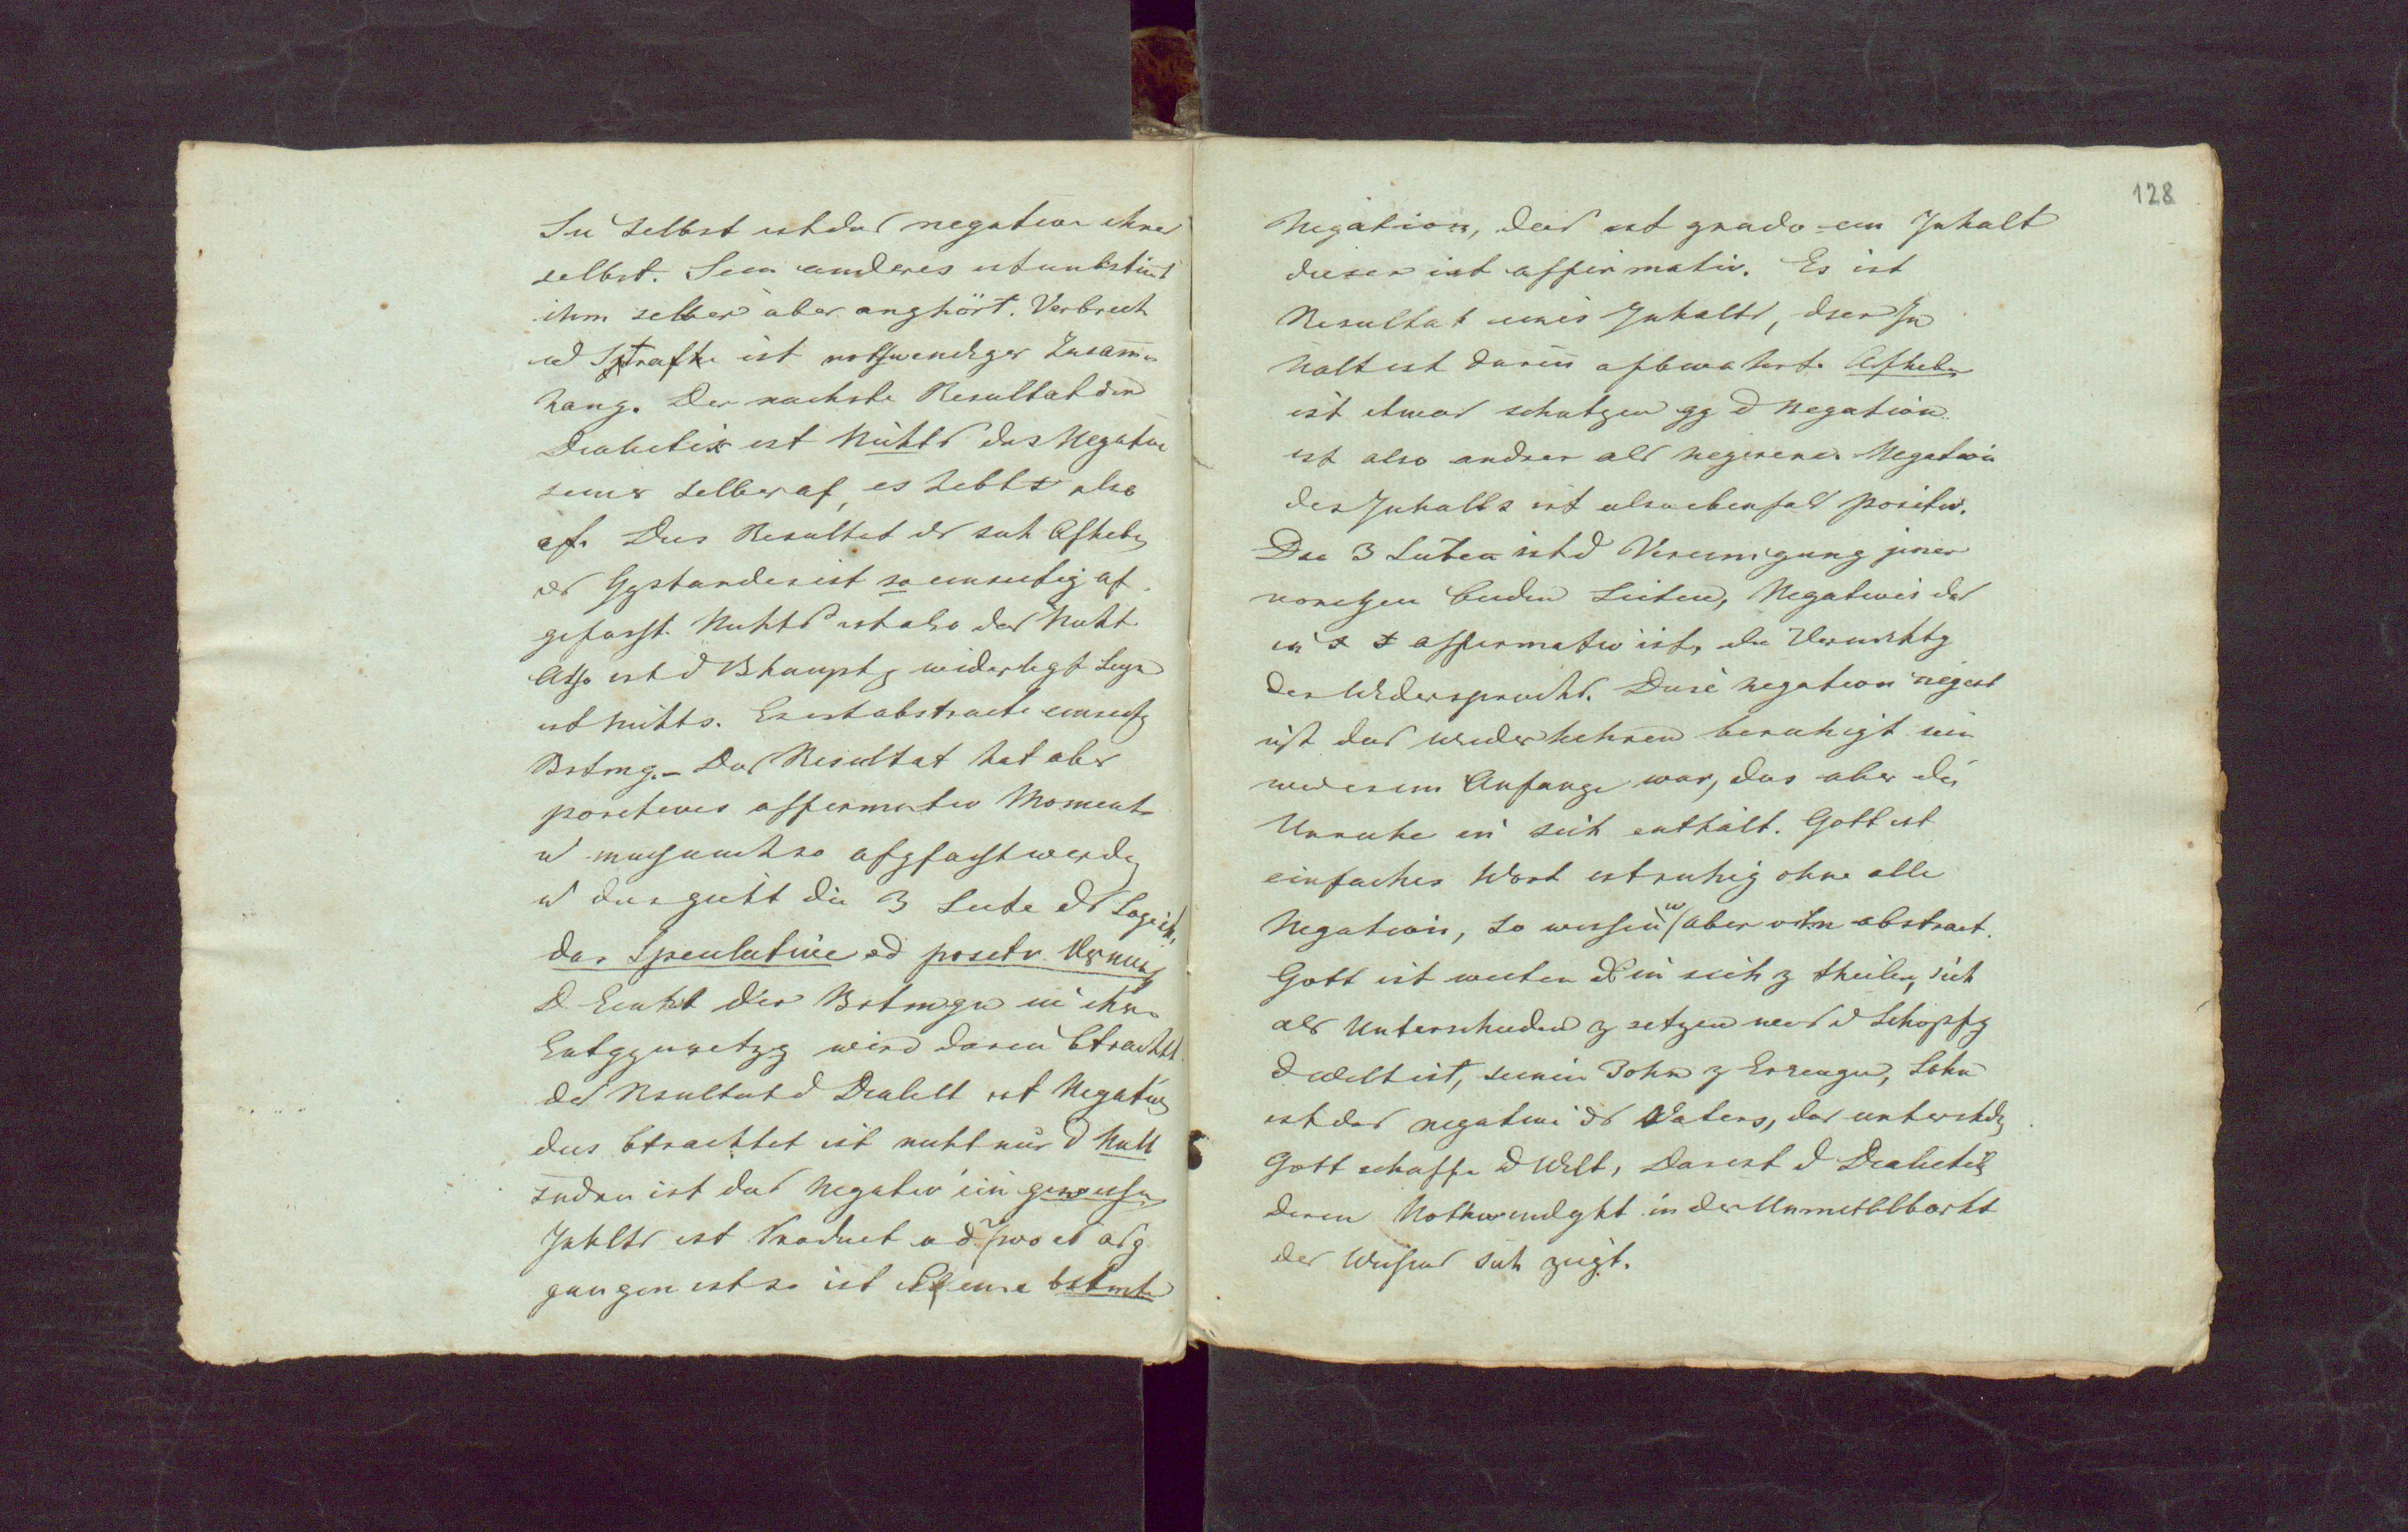 Sie selbst ist das negative ihrer
selbst. Sein anderes ist unbstimt
ihm selber aber anghört. Verbrech
ud Strafe ist nothwendiger Zusamm
hang. Der nachste Resultat der
Dialectik ist Nichts das Negative
seiner selber af, es hebt s also
af. Das Resultat ds sich Afheben
ds Ggstandes ist so einseitig af
gefasst. Nichts ist also das Nicht
Also ist d Bhauptg widerlegt Seyn
ist Nichts. Es ist abstracte einseitg
Bstmg. – Das Resultat hat aber
positives affirmativ Moment
u muss auch so afgfasst werden
u das giebt die 3 Seite dr Logik,
das Speculative od positv Vernunf
D Einht dser Bstmgn in ihrer
Entggnsetzg wird darin btracht
das Rsultat d Dialekt ist Negativ
dies btrachtet ist nicht nur d Null
sndrn ist das Negativ ein gewissen
Inhlts ist Product ad wo es asg
gangen ist so ist es eine bstmte
128
Negation, das ist grade ein Inhalt
dieser ist affirmativ. Es ist
Resultat eines Inhalts, dser In
halt ist darin afbewahrt. Afheben
ist etwas schutzen gg d Negation.
ist also andres als negiren. Negation
des Inhalts ist also ebenfals positiv.
Die 3 Seiten ist d Vereinigung jener
vorigen beiden Seiten, Negatives das
in s s affirmativ ist, die Vernichtg
des Widerspruchs. Diese Negation negirt
ist das wiederkehren beruhigt sein
wie es im Anfange war, das aber die
Unruhe in sich enthält. Gott ist
einfaches Wort ist ruhig ohne alle
Negation, so wissen w aber ihn abstract.
Gott ist weiter d in sich z theilen, sich
als Unterschieden z setzen was d Schöpfg
d Welt ist, seinen Sohn z Erzeugen, Sohn
ist das negative ds Vaters, das unterschdn
Gott schaffe d Welt, Das ist d Dialectik
deren Nothwendgkt in der Unmittlbarkt
des Wissens sich zeigt.